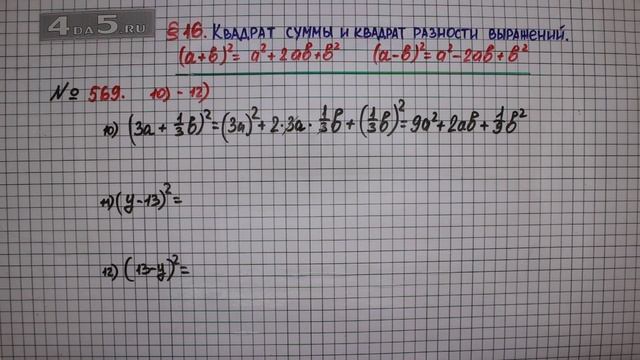 4DA5.RU
§ 16. КВАДРАТ СУММЫ И КВАДРАТ РАЗНОСТИ ВЫРАЖЕНИЙ.
(a+b)² = a² + 2ab + b² (a-b)² = a² - 2ab + b²
№ 569. 10) - 12)
10) (3a + 1/3 b)² = (3a)² + 2·3a · 1/3 b + (1/3 b)² = 9a² + 2ab + 1/9 b²
11) (y - 13)² =
12) (13 - y)² =